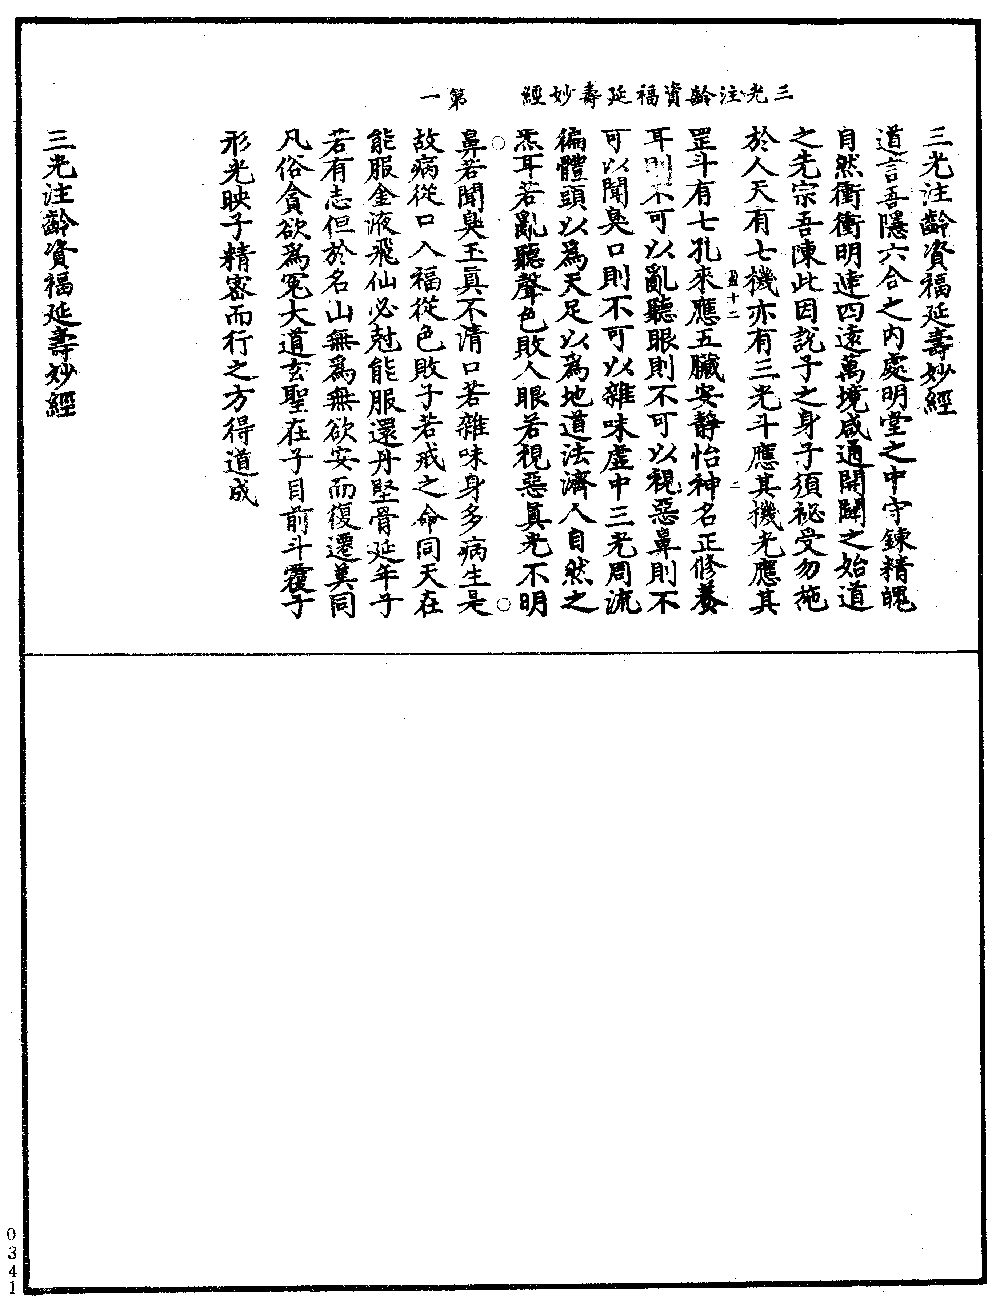 三光注齡資福延壽妙經　第一
三光注齡資福延壽妙經
道言吾隱六合之內處明堂之中守鍊精魄
自然衝衝明達四遠萬境咸通開闢之始道
之先宗吾陳此因說子之身子須祕受勿施
於人天有七機亦有三光斗應其機光應其
盈十二　二
罡斗有七孔來應五臟安靜怡神名正修養
耳則不可以亂聽眼則不可以視惡鼻則不
可以聞臭口則不可以雜味虛中三光周流
徧體頭以爲天足以爲地道法濟人自然之
炁耳若亂聽聲色敗人眼若視惡眞光不明
鼻若聞臭玉眞不清口若雜味身多病生是
故病從口入福從色敗子若戒之命同天在
能服金液飛仙必尅能服還丹堅骨延年子
若有志但於名山無爲無欲安而復遷莫同
凡俗貪欲爲冤大道玄聖在子目前斗覆子
形光映子精密而行之方得道成
三光注齡資福延壽妙經
0341